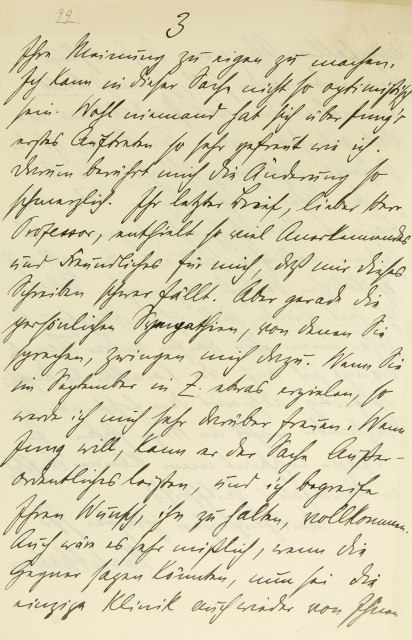 22.
3
Ihre Meinung zu eigen zu machen.
Ich kann in dieser Sache nicht so optimistisch
sein. Wohl niemand hat sich über Jung's
erstes Auftreten so sehr gefreut wie ich.
Darum berührt mich die Änderung so
schmerzlich. Ihr letzter Brief, lieber Herr
Professor, enthielt so viel Anerkennendes
und Freundliches für mich, daß mir dieses
Schreiben schwer fällt. Aber gerade die
persönlichen Sympathien, von denen Sie
sprechen, zwingen mich dazu. Wenn Sie
im September in Z. etwas erzielen, so
werde ich mich sehr darüber freuen. Wenn
Jung will, kann er der Sache Außer-
ordentliches leisten, und ich begreife
Ihren Wunsch, ihn zu halten, vollkommen.
Auch wäre es sehr mißlich, wenn die
Gegner sagen könnten, nun sei die
einzige Klinik auch wieder von Ihnen